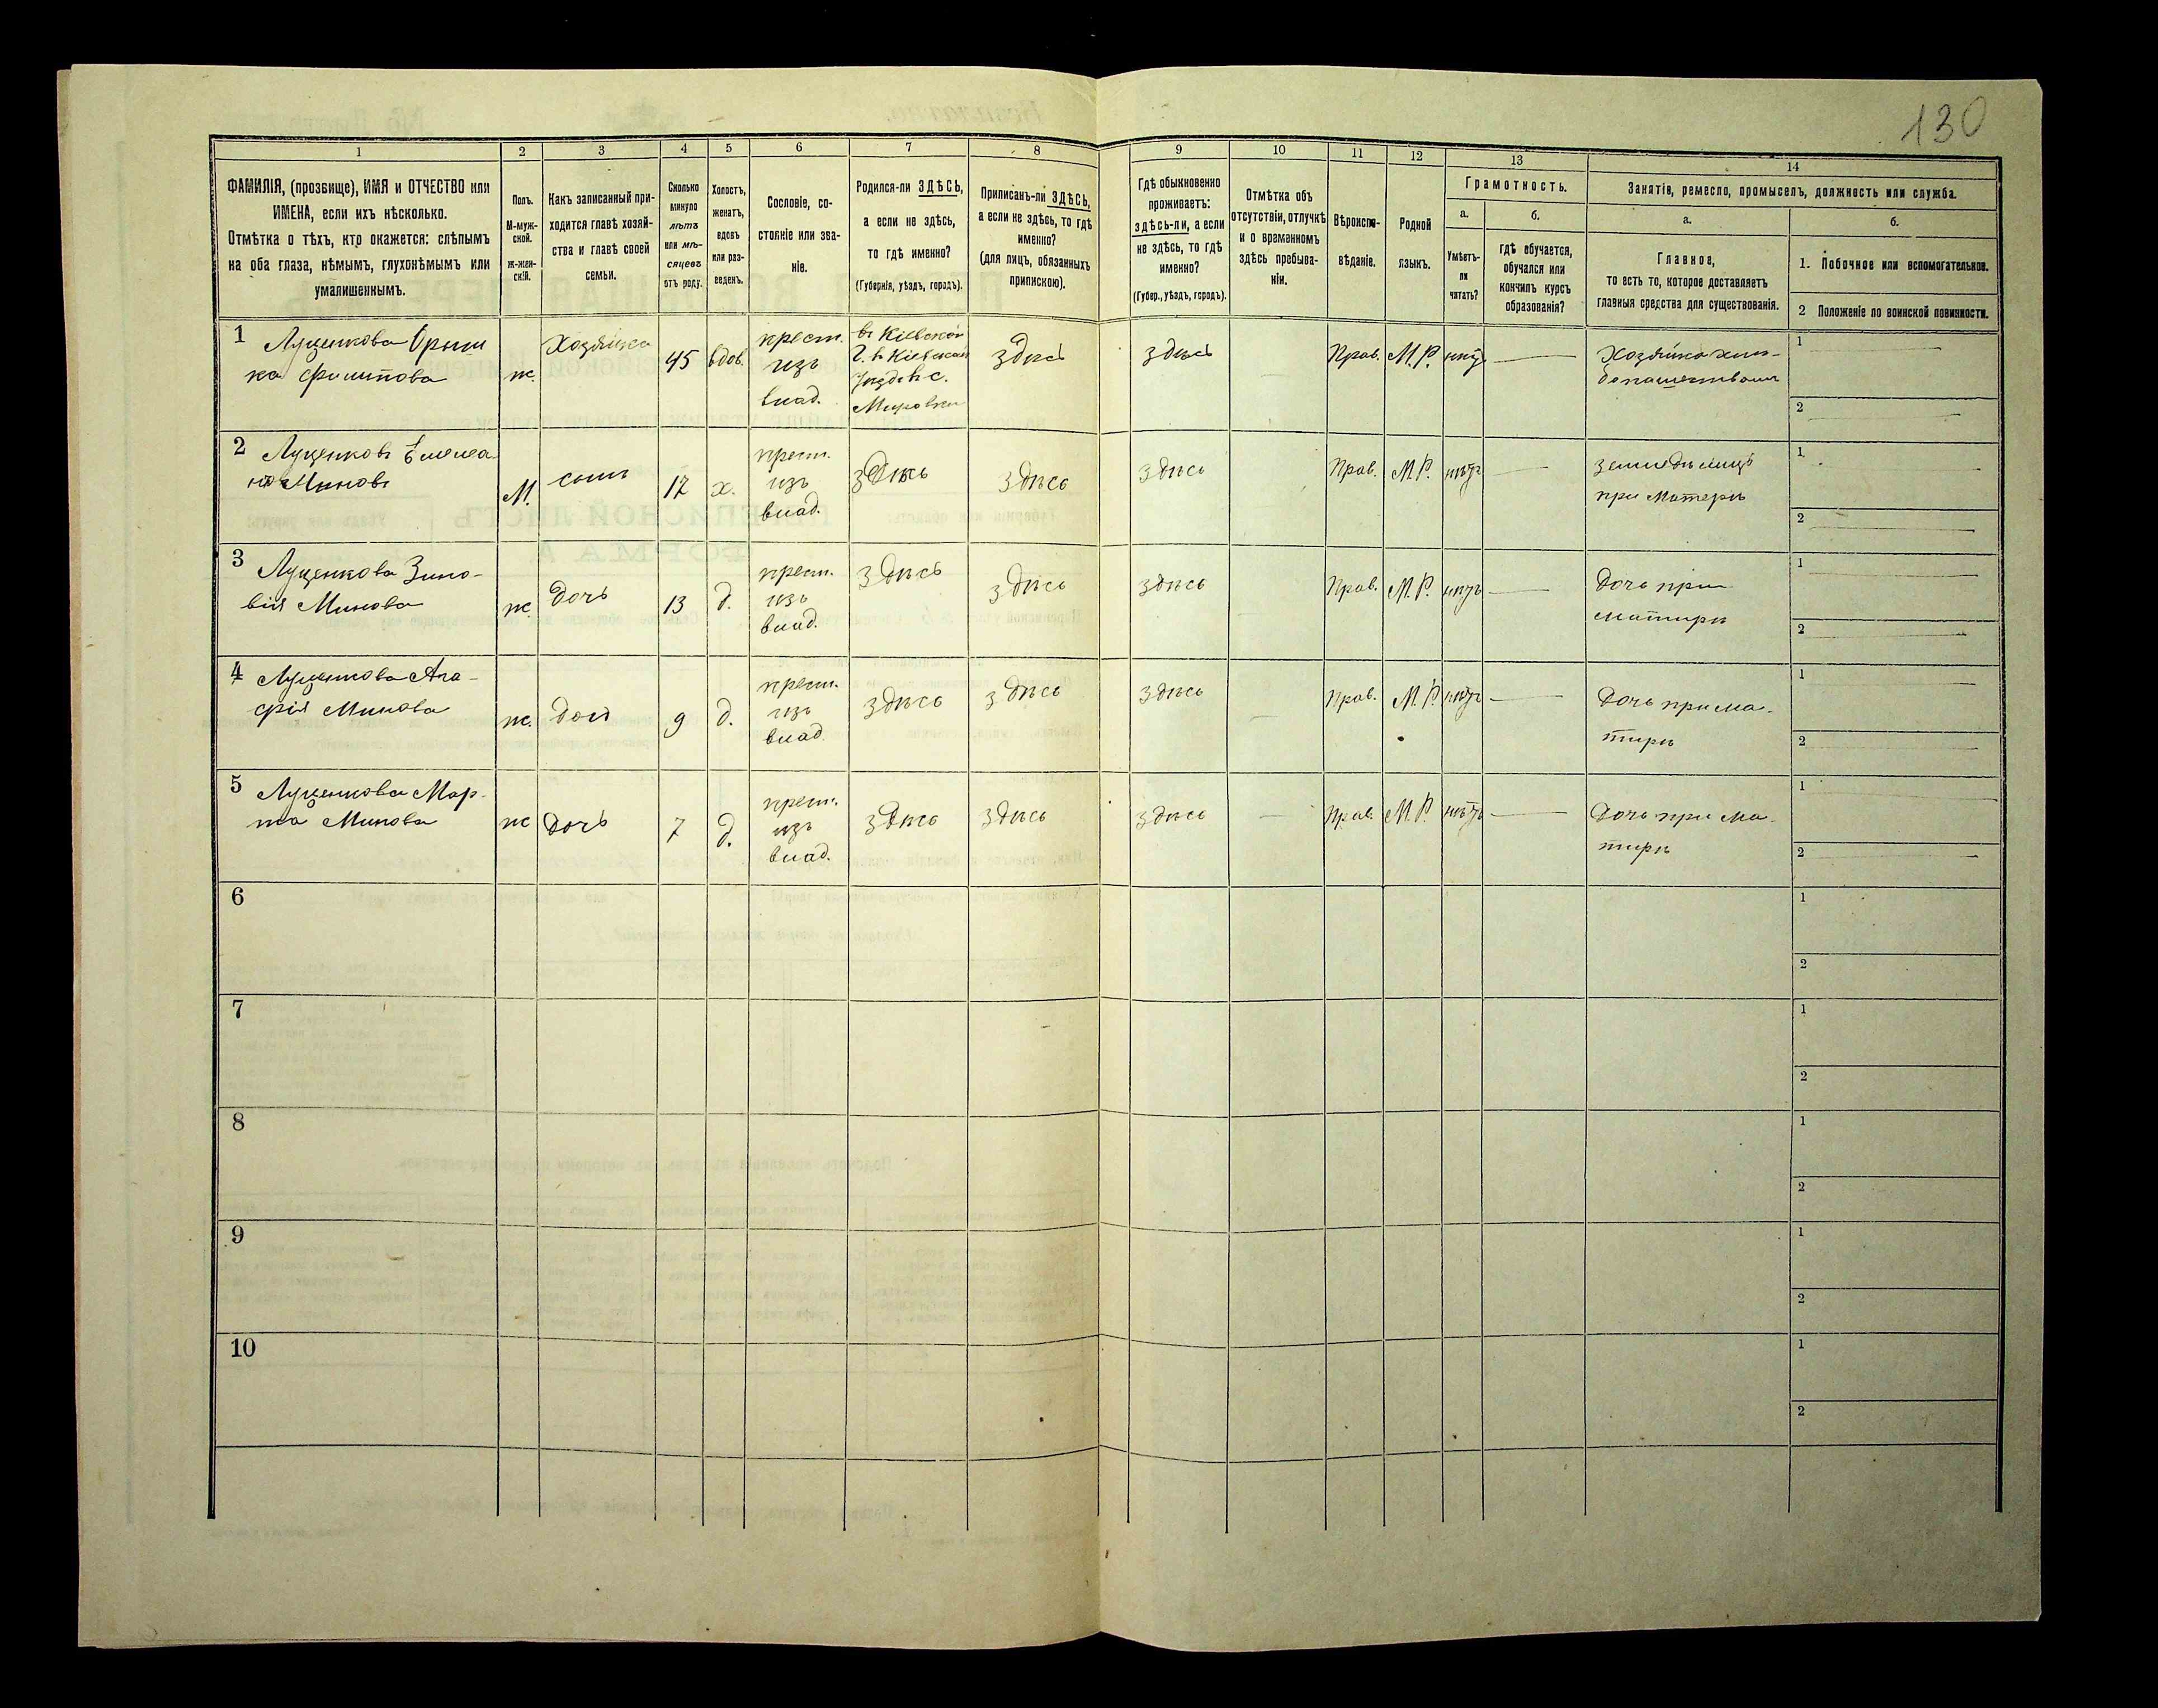 130
1 2 3 4 5 6 7 8 9 10 11 12 13 14
ФАМИЛІЯ, (прозвище), ИМЯ и ОТЧЕСТВО или
ИМЕНА, если ихъ нѣсколько.
Отмѣтка о тѣхъ, кто окажется: слѣпымъ
на оба глаза, нѣмымъ, глухонѣмымъ или
умалишеннымъ.
Полъ.
М-муж-
ской.
ж-жен-
скій.
Какъ записанный при-
ходится главѣ хозяй-
ства и главѣ своей
семьи.
Сколько
минуло
лѣтъ
или мѣ-
сяцевъ
отъ роду.
Холостъ,
женатъ,
вдовъ
или раз-
веденъ.
Сословіе, со-
стояніе или зва-
ніе.
Родился-ли ЗДѢСЬ,
а если не здѣсь,
то гдѣ именно?
(Губернія, уѣздъ, городъ).
Приписанъ-ли ЗДѢСЬ,
а если не здѣсь, то гдѣ
именно?
(для лицъ, обязанныхъ
припискою).
Гдѣ обыкновенно
проживаетъ:
здѣсь-ли, а если
не здѣсь, то гдѣ
именно?
(Губер., уѣздъ, городъ).
Отмѣтка объ
отсутствіи, отлучкѣ
и о временномъ
здѣсь пребыва-
ніи.
Вѣроиспо-
вѣданіе.
Родной
языкъ.
Грамотность.
а.
Умѣетъ-
ли
читать?
б.
Гдѣ обучается,
обучался или
кончилъ курсъ
образованія?
Занятіе, ремесло, промыселъ, должность или служба.
а.
Главное,
то есть то, которое доставляетъ
главныя средства для существованія.
б.
1. Побочное или вспомогательное.
2 Положеніе по воинской повинности.
1 Луценкова Орыш
ка Филипова
ж.
Хозяйка
45
вдов.
крест.
изъ
влад.
въ Кіевской
Г. въ Кіевскам
Уѣздѣ с.
Мировки
здѣсь
здѣсь
Прав.
М.Р.
нѣтъ
Хозяйка хлѣ-
1
2
2 Луценковъ Емелеа
новъ Миновъ
М.
сынъ
17
х.
крест.
изъ
влад.
здѣсь
здѣсь
здѣсь
Прав.
М.Р.
нѣтъ
земледѣлецъ
при Матерѣ
1
2
3 Луценкова Зино-
вія Минова
ж
дочь
13
д.
крест.
изъ
влад.
здѣсь
здѣсь
здѣсь
Прав.
М.Р.
нѣтъ
Дочь при
матирѣ
1
2
4 Луценкова Ага-
фія Минова
ж.
доч
9
д.
крест.
изъ
влад
здѣсь
здѣсь
здѣсь
Прав.
М.Р.
нѣтъ
Дочь при ма-
тирѣ
1
2
5 Луценкова Мар-
ѳа Минова
ж
дочь
7
д.
крест.
изъ
влад.
здѣсь
здѣсь
здѣсь
Прав.
М.Р.
нѣтъ
Дочь при ма-
тирѣ
1
2
6
1
2
7
1
2
8
1
2
9
1
2
10
1
2